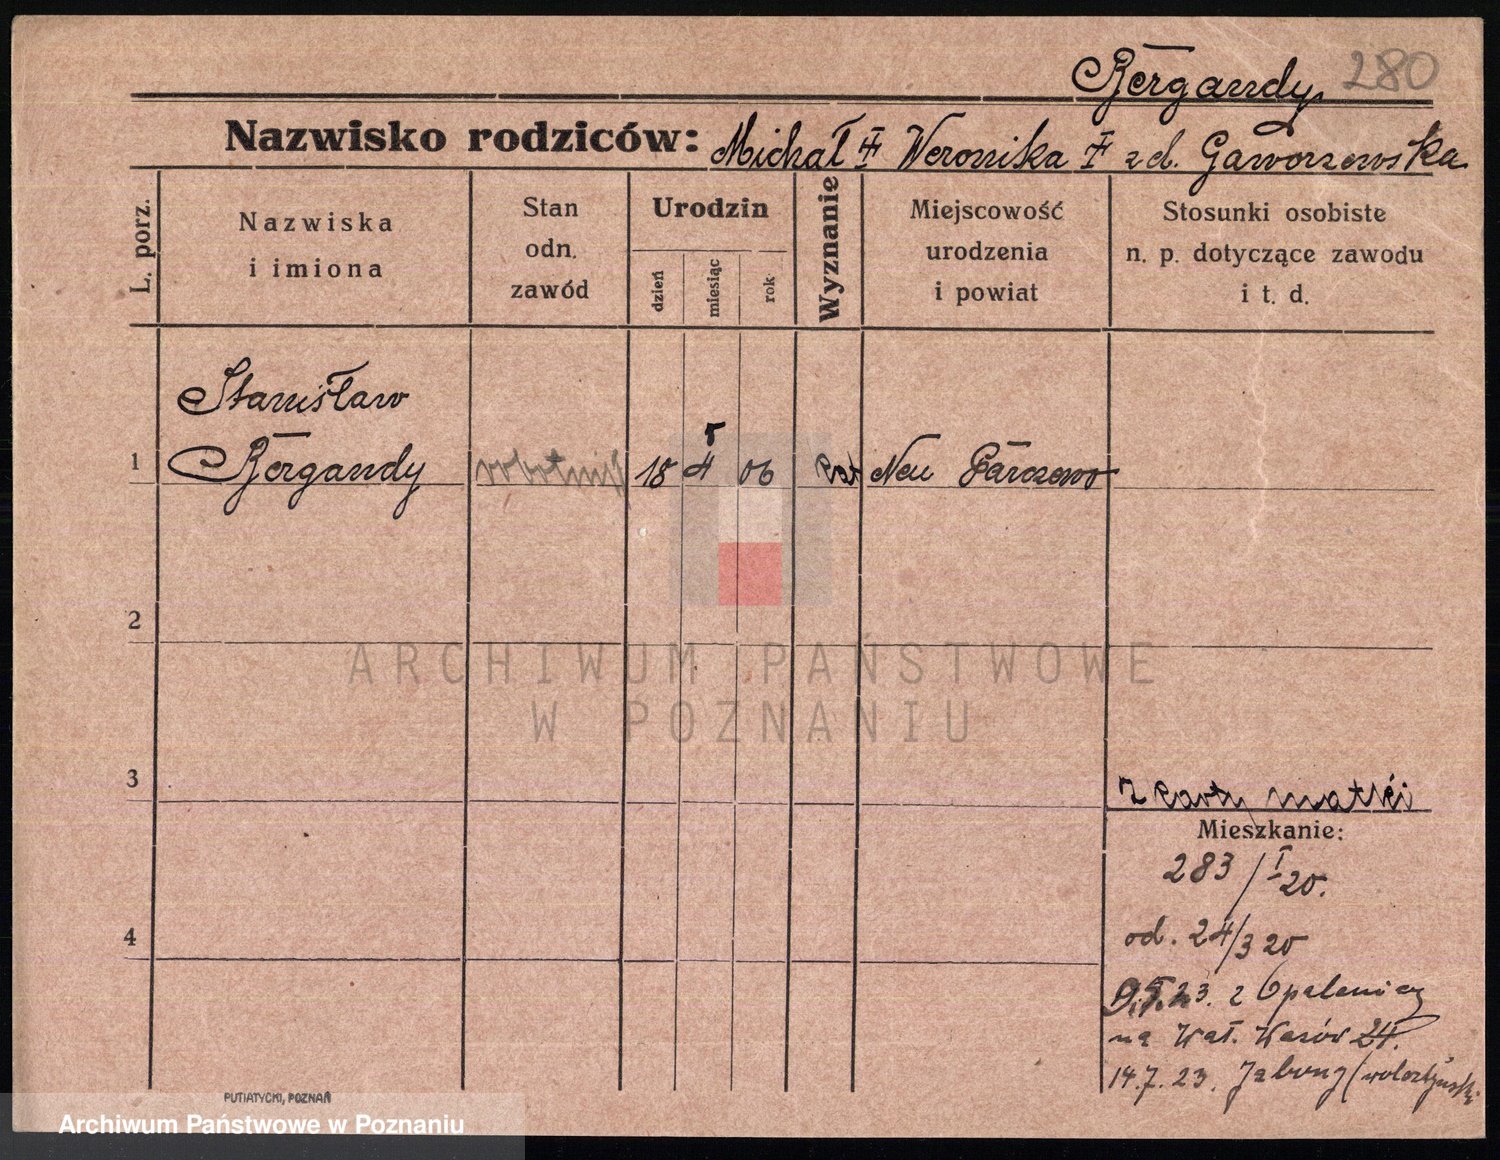 Bergandy 280
Nazwisko rodziców: Michał ‡ Weronika ‡ zd. Gaworzewska
L. porz.
Nazwiska
i imiona
Stan
odn.
zawód
Urodzin
dzień
miesiąc
rok
Wyznanie
Miejscowość
urodzenia
i powiat
Stosunki osobiste
n. p. dotyczące zawodu
i t. d.
Stanisław
5
1 Bergandy robotnik 18 4 06 kat Neu
2
ARCHIWUM PAŃSTWOWE
W POZNANIU
3
z karty matki
Mieszkanie:
283/I 20.
4
od. 24/3 20
23. z Opalenicy
na Wał. 24.
14.7.23.
PUTIATYCKI, POZNAŃ
Archiwum Państwowe w Poznaniu